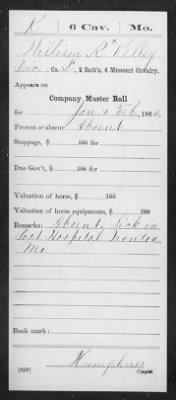 K 6 Cav. Mo.
William R. Kelley
Co. F, 2 Batt'n, 6 Missouri Cavalry.
Appears on
Company Muster Roll
for Jan & Feb, 186
Present or absent Absent
Stoppage, $ 100 for
Due Gov't, $ 100 for
Valuation of horse, $ 100
Valuation of horse equipments, $ 100
Remarks: Absent, Sick in
Post Hospital Ironton
Mo
Book mark:
Humphrey
(358) Copyist.